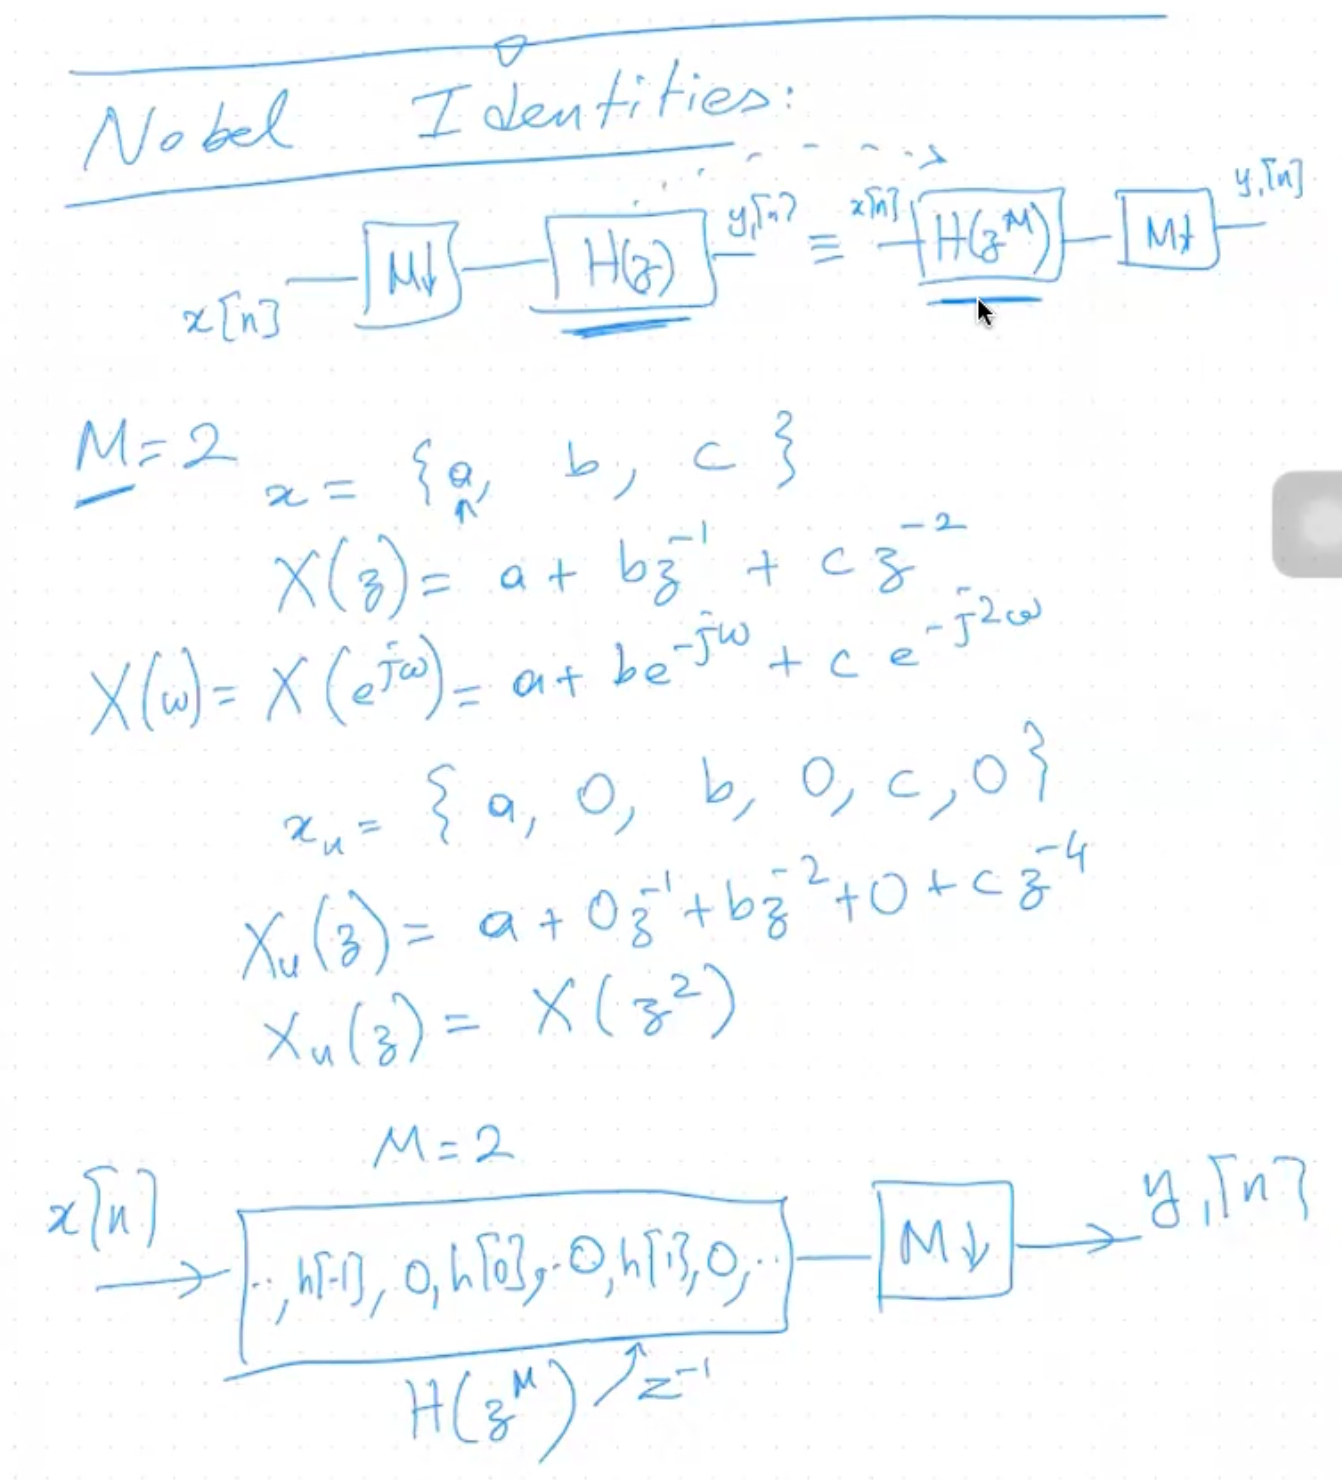 Nobel Identities:
x[n] M↓ H(z) y₁[n] ≡ x[n] H(z^M) M↓ y₁[n]
M=2
x = {a, b, c}
↑
X(z) = a + bz^-1 + cz^-2
X(ω) = X(e^jω) = a + be^-jω + c e^-j2ω
x_u = {a, 0, b, 0, c, 0}
X_u(z) = a + 0z^-1 + bz^-2 + 0 + cz^-4
X_u(z) = X(z^2)
M=2
x[n] → .., h[-1], 0, h[0], .0, h[1], 0, .. M↓ → y₁[n]
H(z^M) z^-1